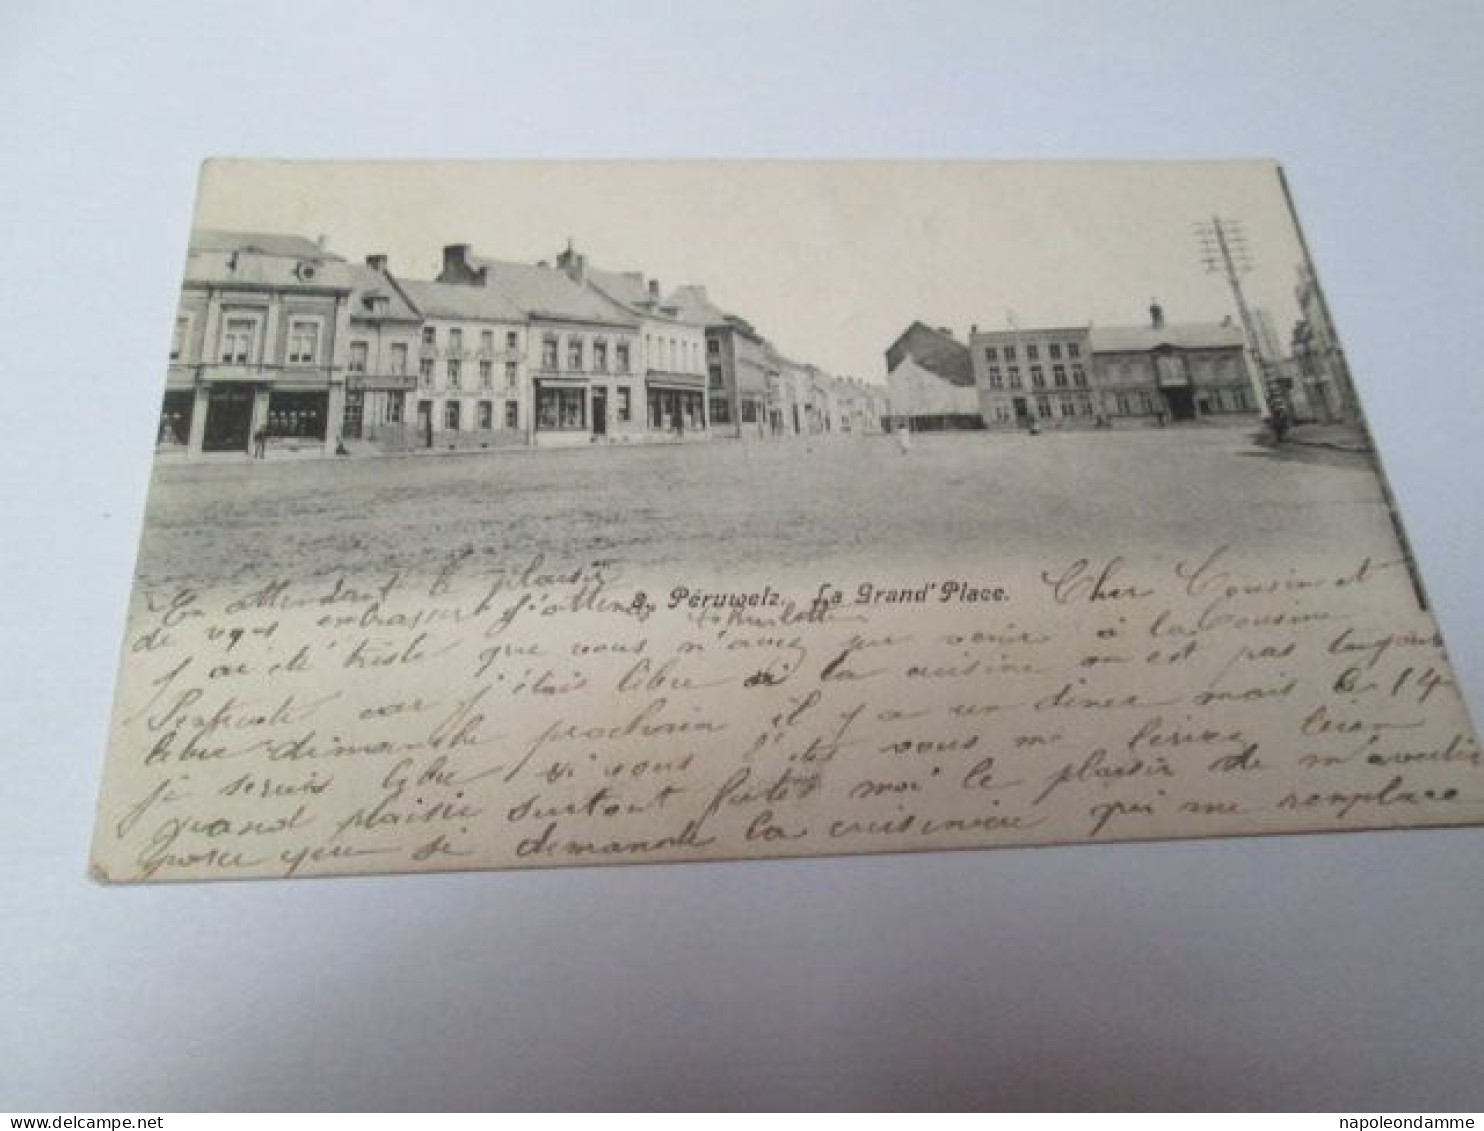 8. Péruwelz. La Grand' Place.
Cher Cousin et
la Cousine
En attendant le plaisir
de vous embrasser j'attend
j'ai été triste que vous n'avez pu venir à la
Pentecote car j'étais libre si la cuisine on est pas toujours
libre dimanche prochain il y a un diner mais le 14
je serais libre si vous l'etes vous me ferivez bien
grand plaisir surtout faites moi le plaisir de m'avertir
parce que je demande la cuisiniere qui me remplace
napoleondamme